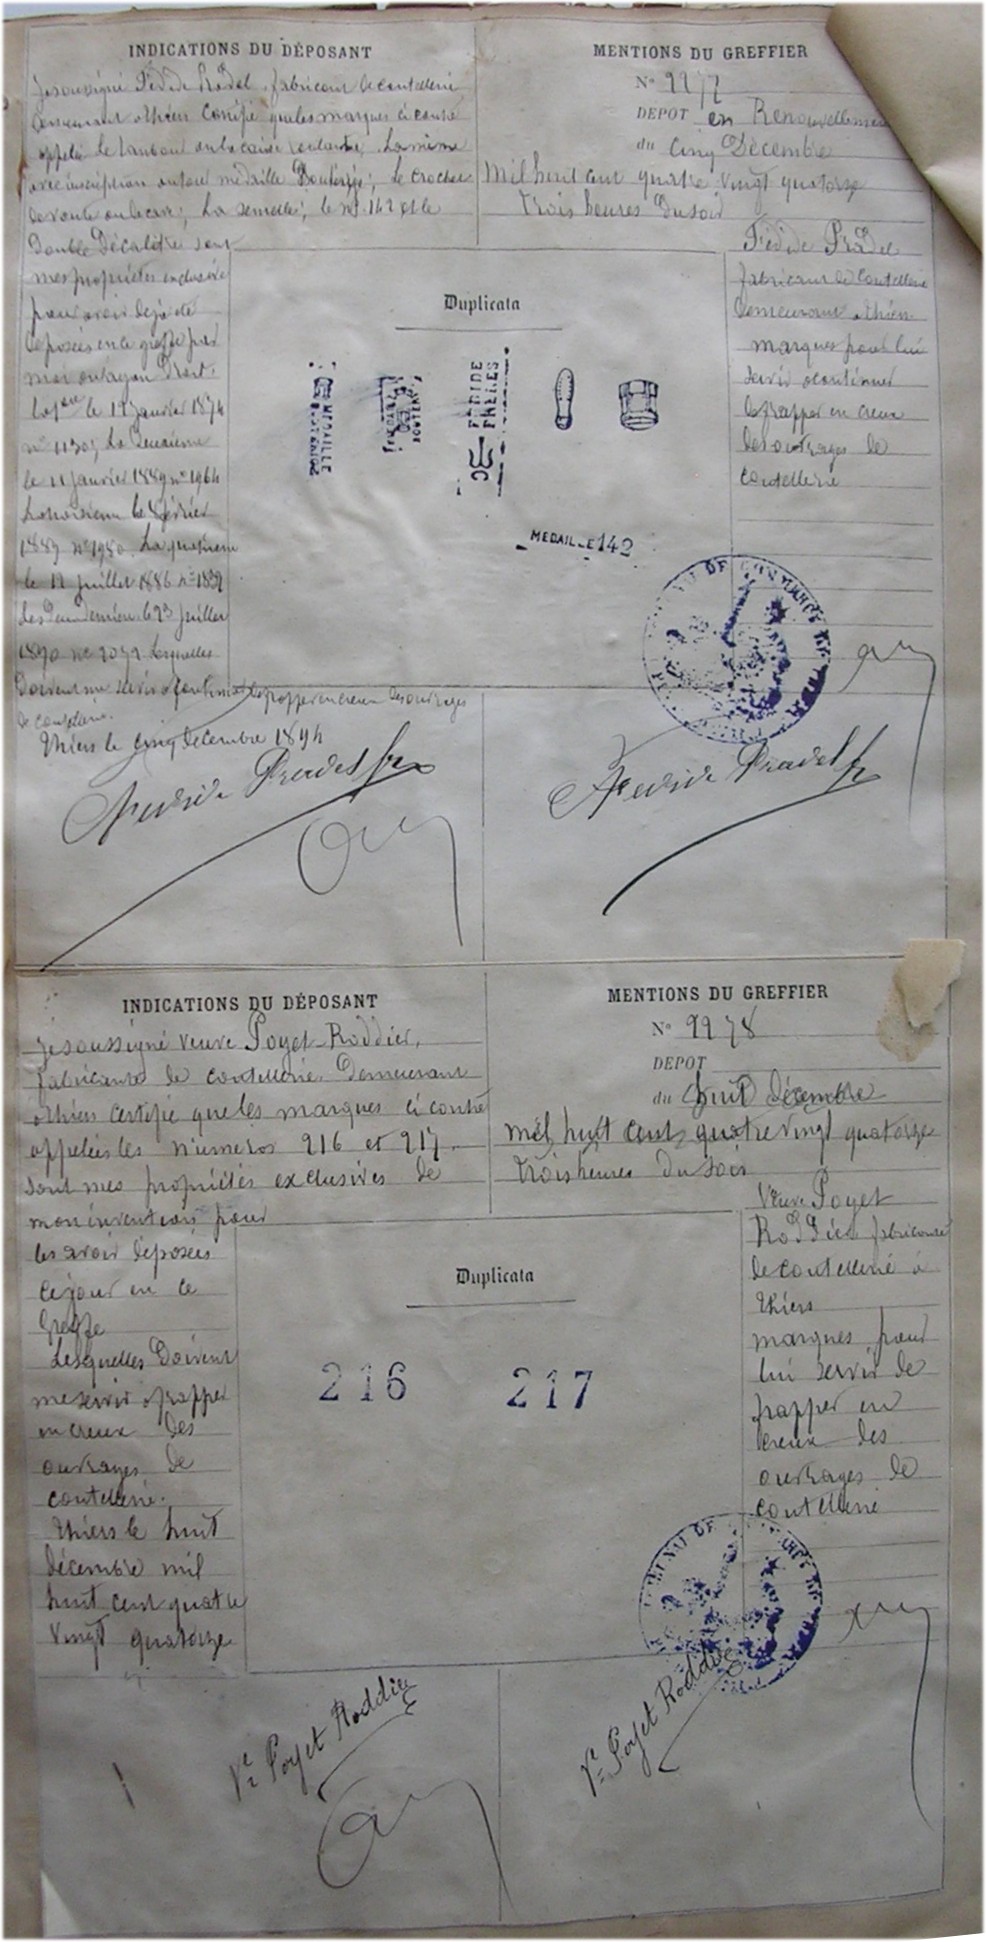 INDICATIONS DU DÉPOSANT
Je soussigné Fédide Pradel, fabricant de coutellerie
demeurant à Thiers certifie que les marques ci contre
appelée Le tambour ou la caisse roulante, La même
avec inscription autour médaille Bouterige; Le crochet
de route ou le car; La semelle; le no 142 et le
Double Décalitre sont
mes propriétés exclusive
pour avoir déjà été
déposées en ce greffe par
moi ou ayan Droit.
La 1ere le 17 janvier 1874
no 1130; La Deuxième
le 11 janvier 1889 no 1964
La troisième le février
1889 no 1980. La quatrieme
le 12 juillet 1886 no
Les Deux Dernières le 23 juillet
1890 no Lesquelles
Doivent me servir à continuer de frapper en creux des ouvrages
de coutellerie.
Thiers le cinq Décembre 1894
Pradel
MENTIONS DU GREFFIER
No 2277
DEPOT en Renouvellement
du Cinq Décembre
Mil huit cent quatre vingt quatorze
trois heures Du soir
Fédide Pradel
fabricant de Coutellerie
demeurant à Thiers
marques pour lui
servir à continuer
de frapper en creux
des ouvrages de
coutellerie
Duplicata
MEDAILLE
FEDIDE
FRERES
MEDAILLE 142
TRIBUNAL DE COMMERCE DE
Pradel
INDICATIONS DU DÉPOSANT
Je soussigné Veuve Poyet-Roddier,
fabricante de coutellerie Demeurant
à Thiers certifie que les marques ci contre
appelées les numéros 216 et 217.
sont mes propriétés exclusives de
mon invention pour
les avoir déposées
ce jour en ce
Greffe
Lesquelles Doivent
me servir à frapper
en creux des
ouvrages de
coutellerie.
Thiers le huit
décembre mil
huit cent quatre
vingt quatorze
MENTIONS DU GREFFIER
No 2278
DEPOT
du huit décembre
mil huit cent quatre vingt quatorze
trois heures du soir
Veuve Poyet
Roddier fabricante
de coutellerie à
Thiers
marques pour
lui servir de
frapper en
creux des
ouvrages de
coutellerie
Duplicata
216 217
TRIBUNAL DE COMMERCE DE
Ve Poyet Roddier
Ve Poyet Roddier